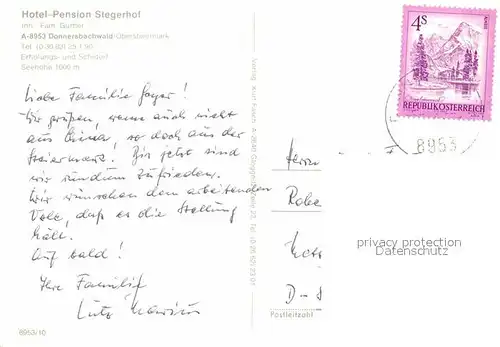 Hotel-Pension Stegerhof
Inh. Fam. Gürtler
A-8953 Donnersbachwald Obersteiermark
Tel. (0 36 80) 25 1 90
Erholungs- und Schidorf
Seehöhe 1000 m
Liebe Familie Hager!
Wir grüßen, wenn auch nicht
aus China, so doch aus der
Steiermark. Bis jetzt sind
wir rundum zufrieden.
Wir wünschen dem arbeitenden
Volk, daß es die Stellung
hält.
Auf bald!
Ihre Familie
Lutz
8953/10
Verlag Kurt
4S
REPUBLIK ÖSTERREICH
8953
Herrn
F
Robe
D-
Postleitzahl
privacy protection
Datenschutz